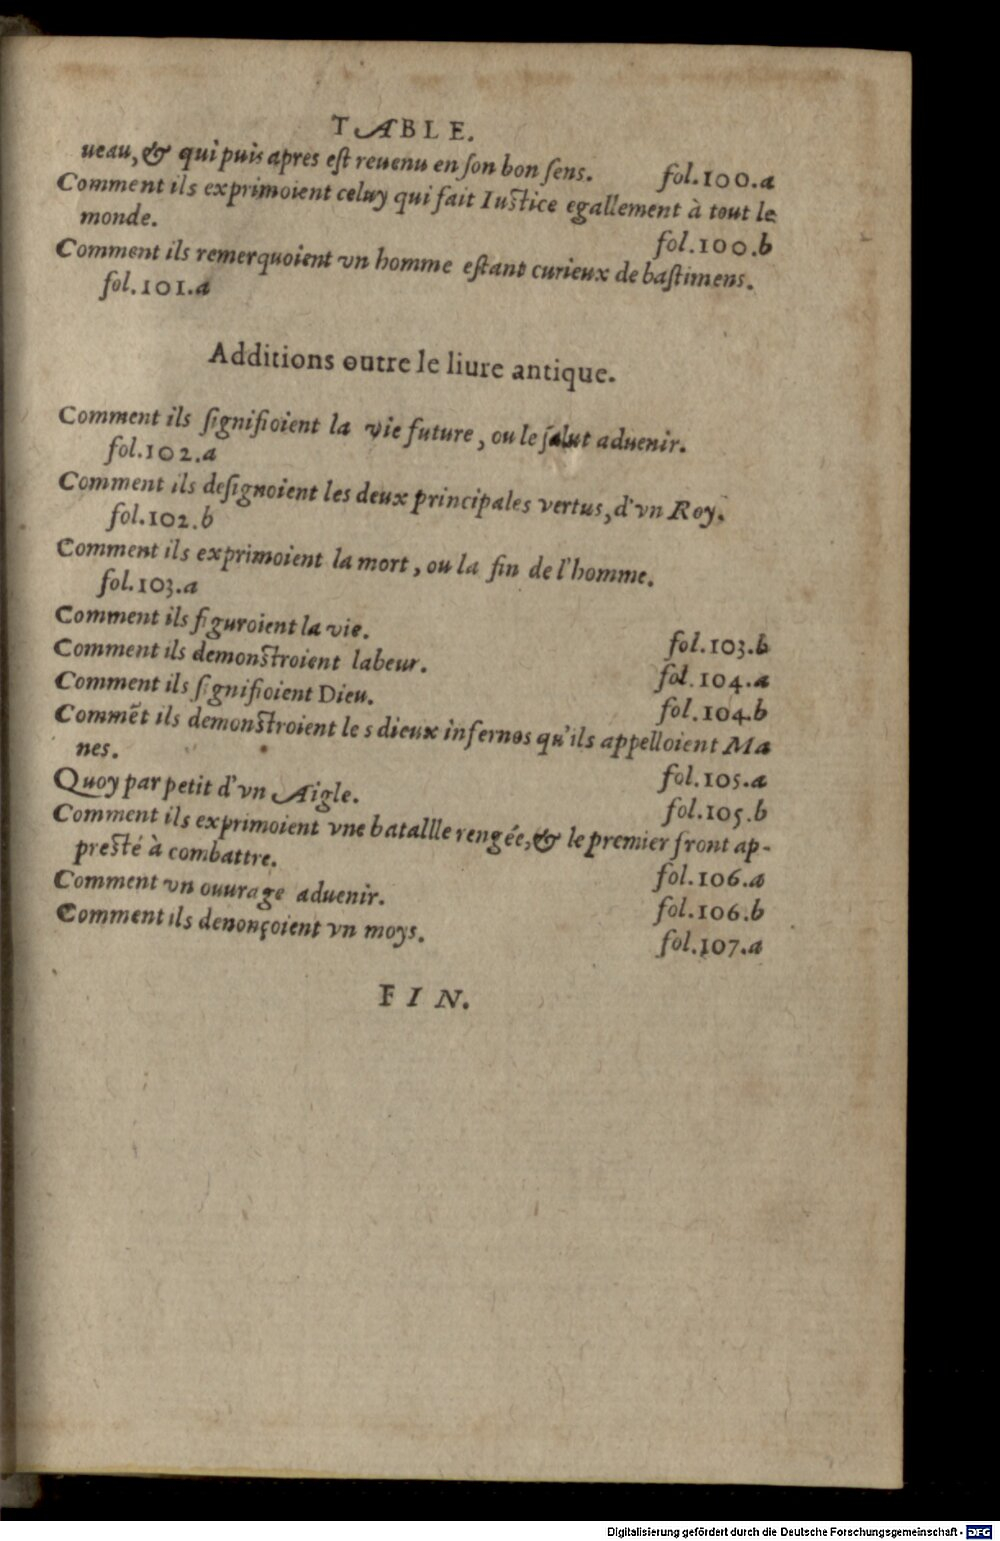 TABLE.
ueau, & qui puis apres eſt reuenu en ſon bon ſens. fol.100.a
Comment ils exprimoient celuy qui fait Iuſtice egallement à tout le
monde. fol.100.b
Comment ils remerquoient vn homme eſtant curieux de baſtimens.
fol.101.a
Additions outre le liure antique.
Comment ils ſignifioient la vie future, ou le ſalut aduenir.
fol.102.a
Comment ils deſignoient les deux principales vertus, d'vn Roy.
fol.102.b
Comment ils exprimoient la mort, ou la fin de l'homme.
fol.103.a
Comment ils figuroient la vie. fol.103.b
Comment ils demonſtroient labeur. fol.104.a
Comment ils ſignifioient Dieu. fol.104.b
Commẽt ils demonſtroient le s dieux infernos qu'ils appelloient Ma
nes. fol.105.a
Quoy par petit d'vn Aigle. fol.105.b
Comment ils exprimoient vne batallle rengée, & le premier front ap-
preſté à combattre. fol.106.a
Comment vn ouurage aduenir. fol.106.b
Comment ils denonçoient vn moys. fol.107.a
FIN.
Digitalisierung gefördert durch die Deutsche Forschungsgemeinschaft - DFG